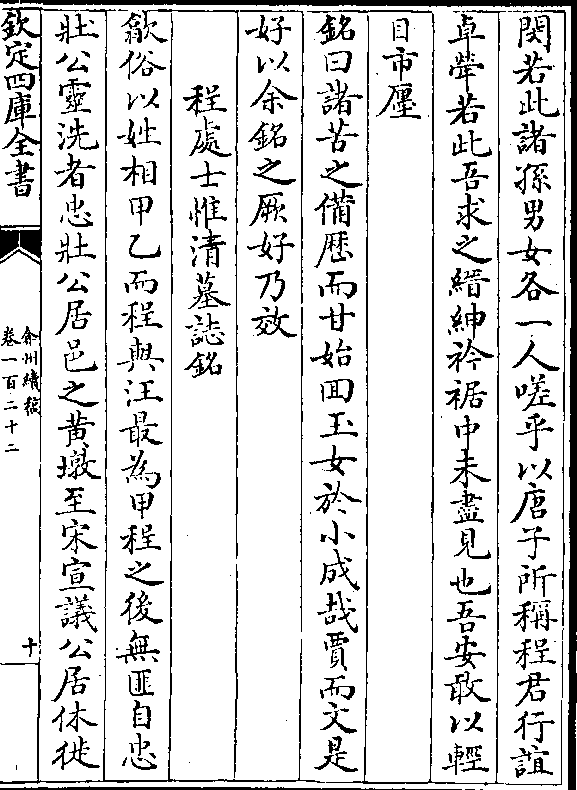 閔若此諸孫男女各一人嗟乎以唐子所稱程君行誼
卓犖若此吾求之縉紳衿裾中未盡見也吾安敢以輕
目市㕓
銘曰諸苦之備歴而甘始囬玉女於小成哉賈而文是
好以余銘之厥好乃效
程處士惟清墓誌銘
歙俗以姓相甲乙而程與汪最為甲程之後無匪自忠
壯公靈洗者忠壯公居邑之黄墩至宋宣議公居休徙
欽定四庫全書
弇州續稿
卷一百二十二
十